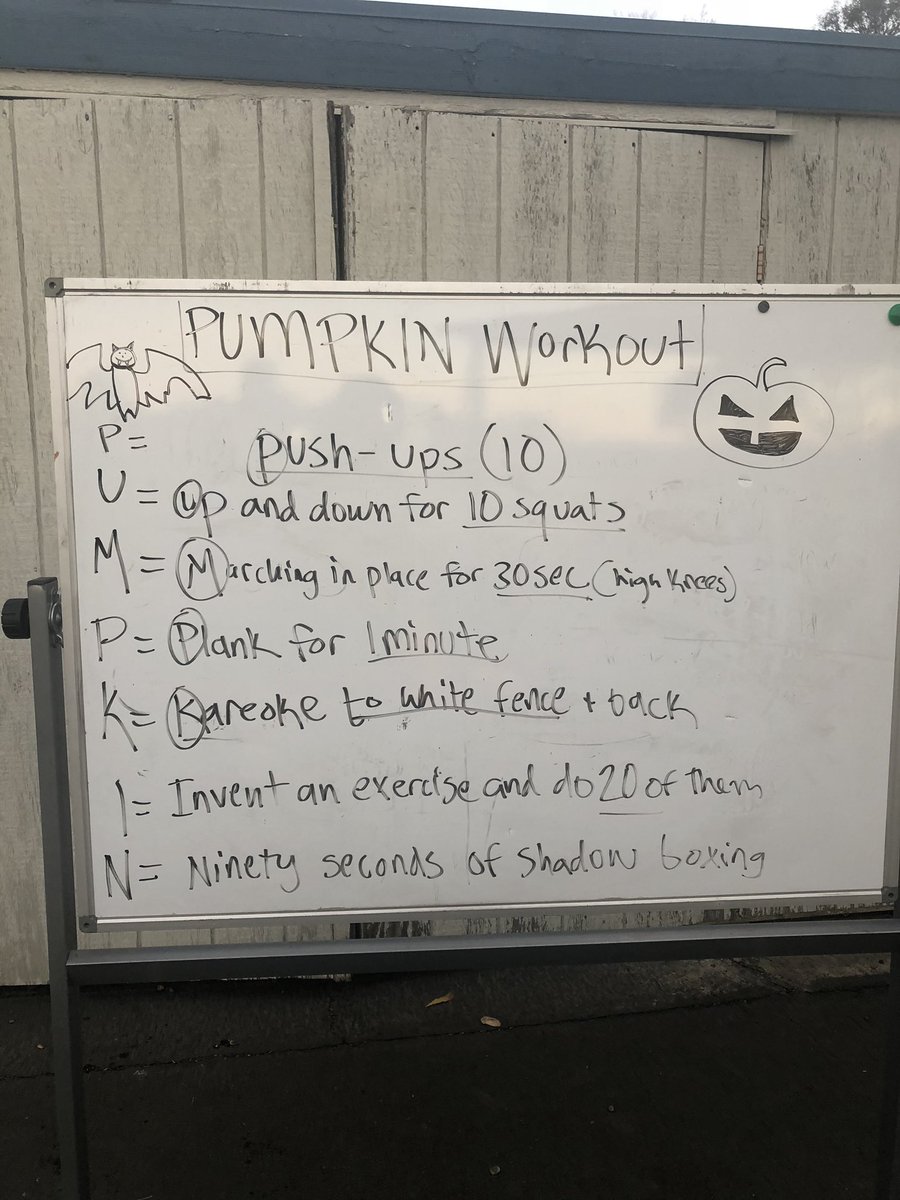 PUMPKIN Workout
P = push-ups (10)
U = Up and down for 10 squats
M = Marching in place for 30 sec (high knees)
P = Plank for 1 minute
K = Kareoke to white fence + back
I = Invent an exercise and do 20 of them
N = Ninety seconds of shadow boxing